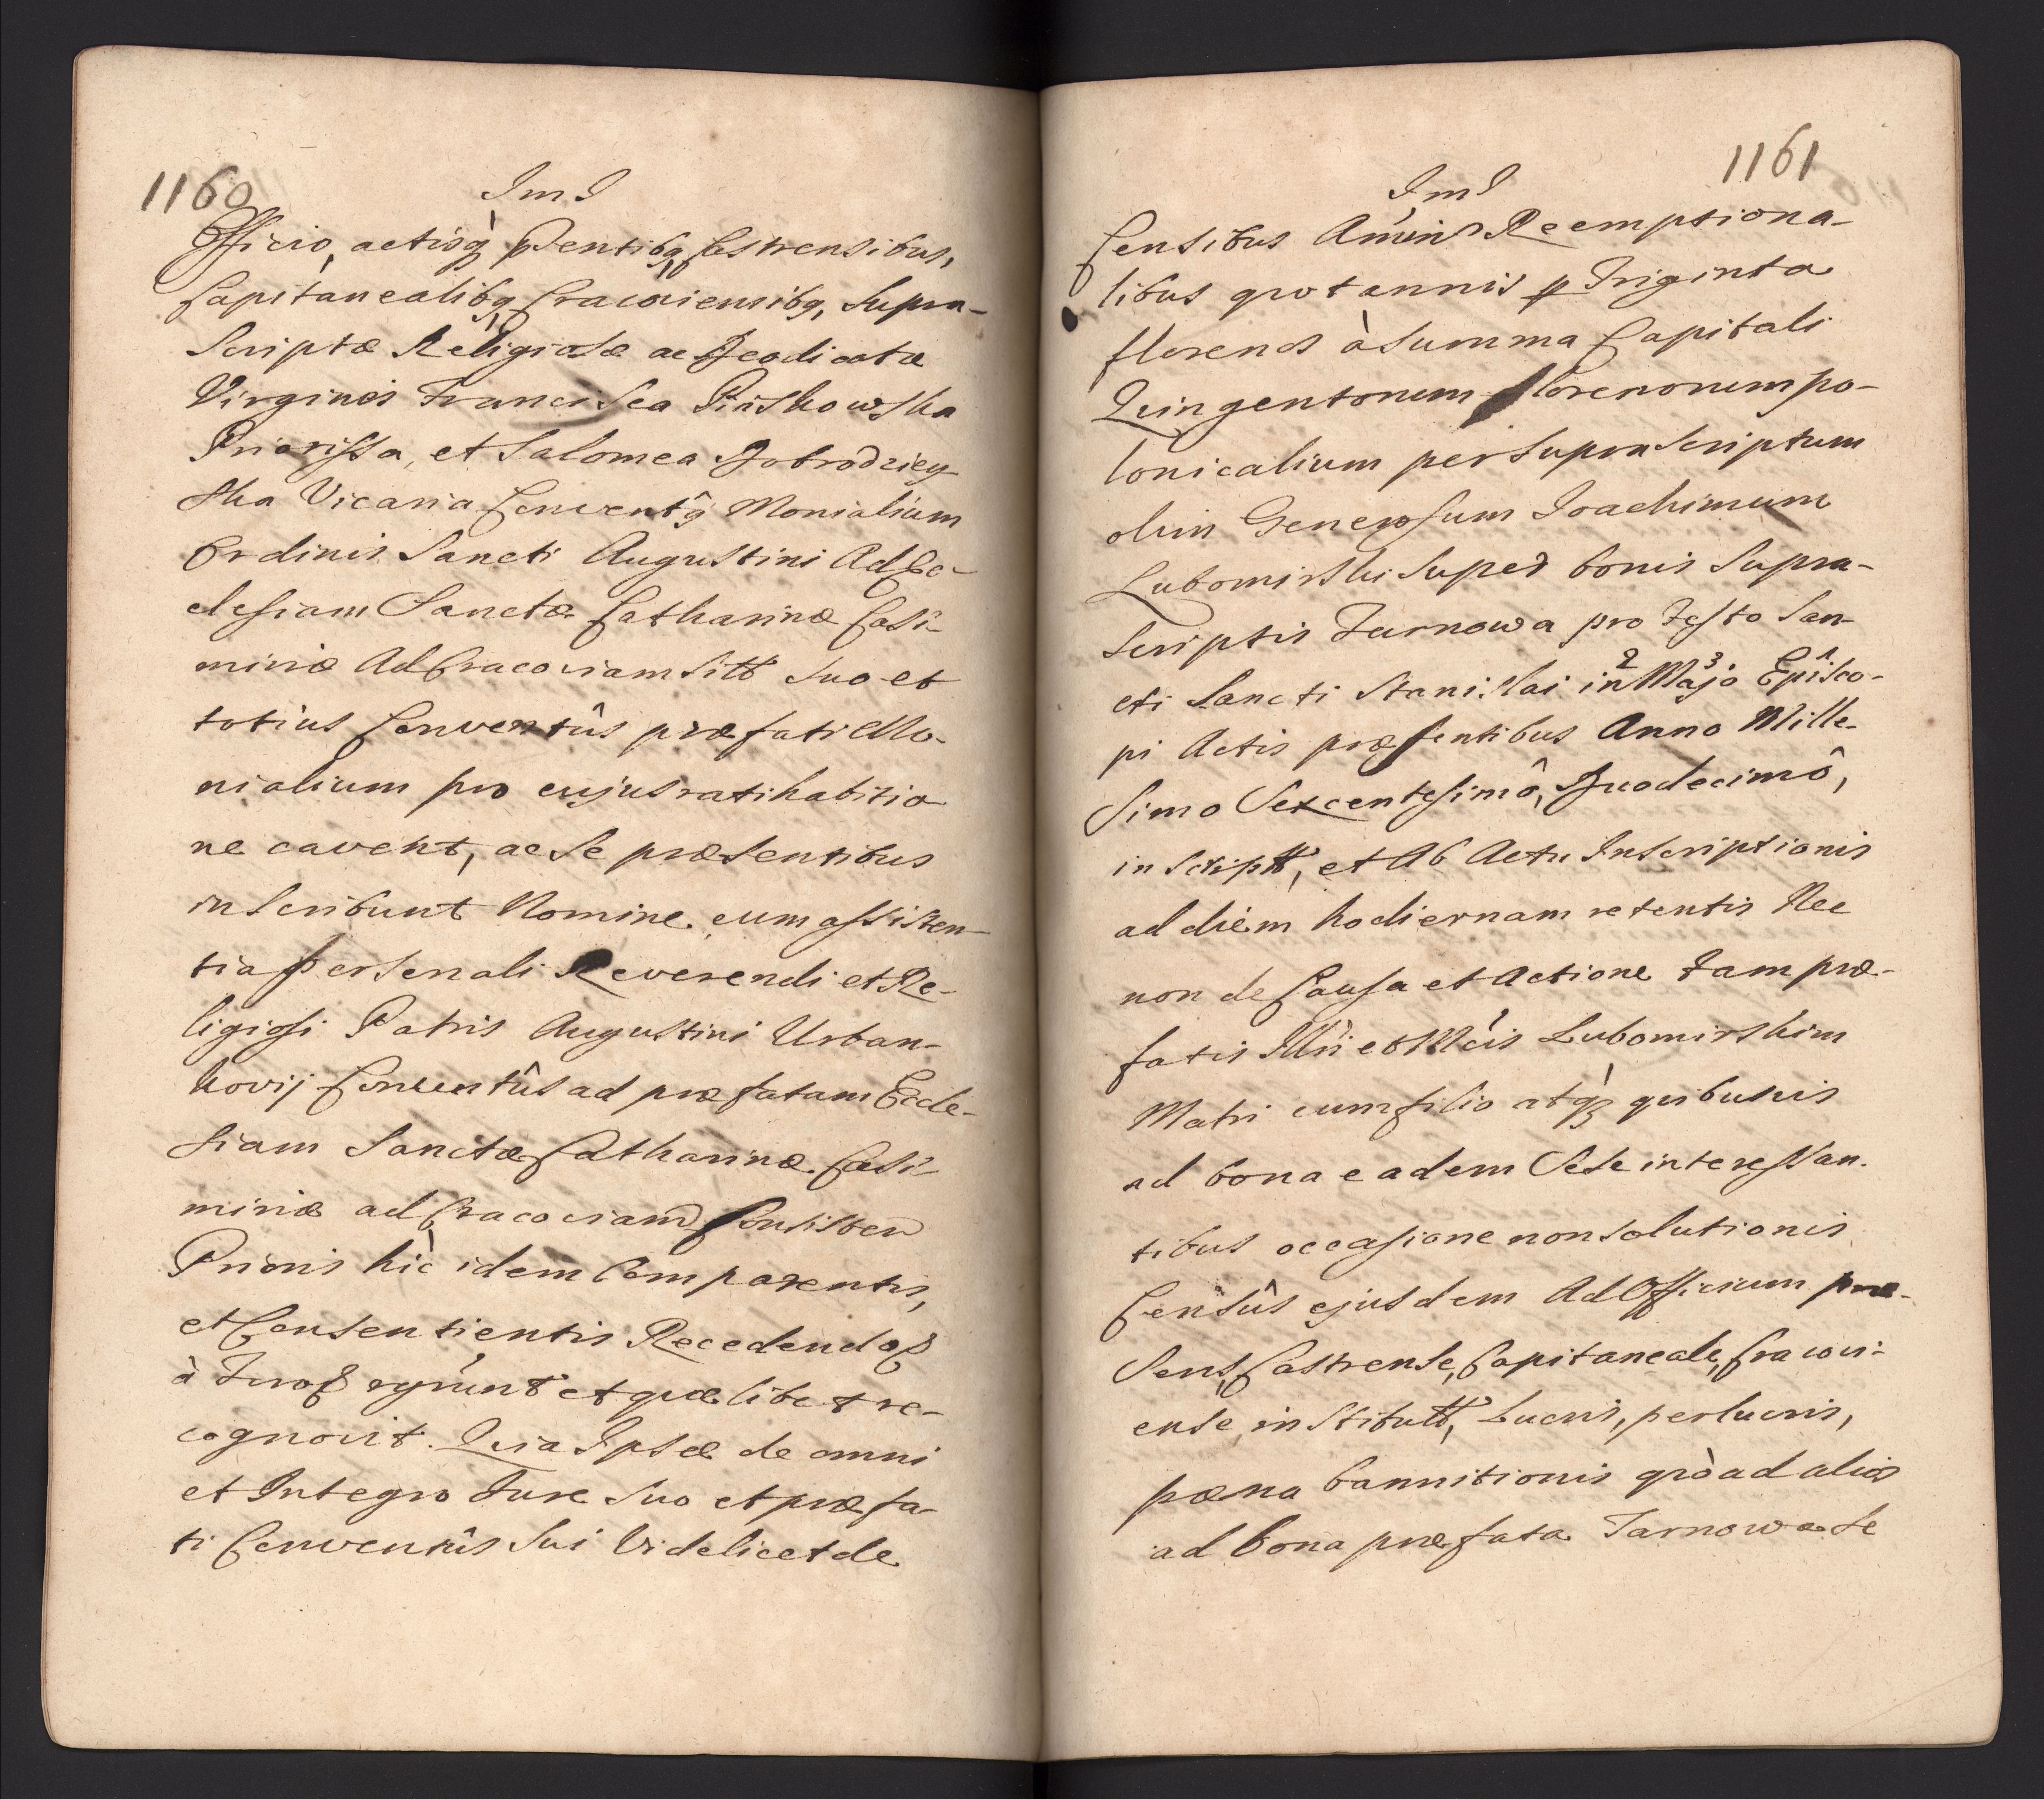 1160
ImI
Officio, actisq̀ꝫ pՏentibꝫ Castrensibus,
Capitanealibꝫ Cracoviensibꝫ, Supra-
Scriptæ Religiosæ ac Deodicatæ
Virgines Francisca Pinskowska
Priorissa, et Salomea Dobrodziey
ska Vicaria Conventûs Monialium
Ordinis Sancti Augustini Ad Ec-
clesiam Sanctæ Catharinæ Casi-
miriæ Ad Cracoviam Sitt suo et
totius Conventûs præfati Mo-
nialium pro cujus ratihabitio
ne cavent, ac se præsentibus
inscribunt Nomine cum assisten-
tia personali Reverendi et Re-
ligiosi Patris Augustini Urban-
kovij Conventûs ad præfatam Eccle-
siam Sanctæ Catharinæ Casi-
miriæ ad Cracoviam Consisten
Prioris hìc idem Comparentis,
et Consentientis Recedendo
à
et quælibet re-
cognovit. Quia Ipsæ de omni
et Integro Jure suo et præfa-
ti Conventûs Sui Videlicet de
1161
ImI
Censibus Reemptiona-
libus quotannis p Triginta
florenos à Summa Capitali
Quingentorum florenorum po-
lonicalium per supra scriptum
olim Generosum Joachimum
Lubomirski super bonis Supra-
scriptis Tarnowa pro Festo San-
cti Sancti Stanislai in 2 Majo 3 Episco- 1
pi Actis præsentibus Anno Mille-
simo Sexcentesimô, Duodecimô,
inscriptt, et Ab Actu Inscriptionis
ad diem hodiernam retentis Nec
non de Causa et Actione tam præ-
fatis Illri et Mcis Lubomirskim
Matri cum filio atqꝫ quibusvis
ad bona eadem Sese interessan-
tibus occasione non solutionis
Censûs ejusdem Ad Officium præ-
sens, Castrense, Capitaneale, Cracovi-
ense, institutt, Lucris, perlucris,
pæna bannitionis quò ad alios
ad bona præfata Tarnowa se